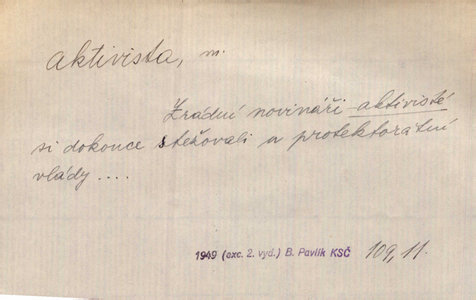 aktivista, m.
Zrádní novináři-aktivisté
si dokonce stěžovali u protektorátní
vlády ....
1949 (exc. 2. vyd.) B. Pavlík KSČ 109, 11.